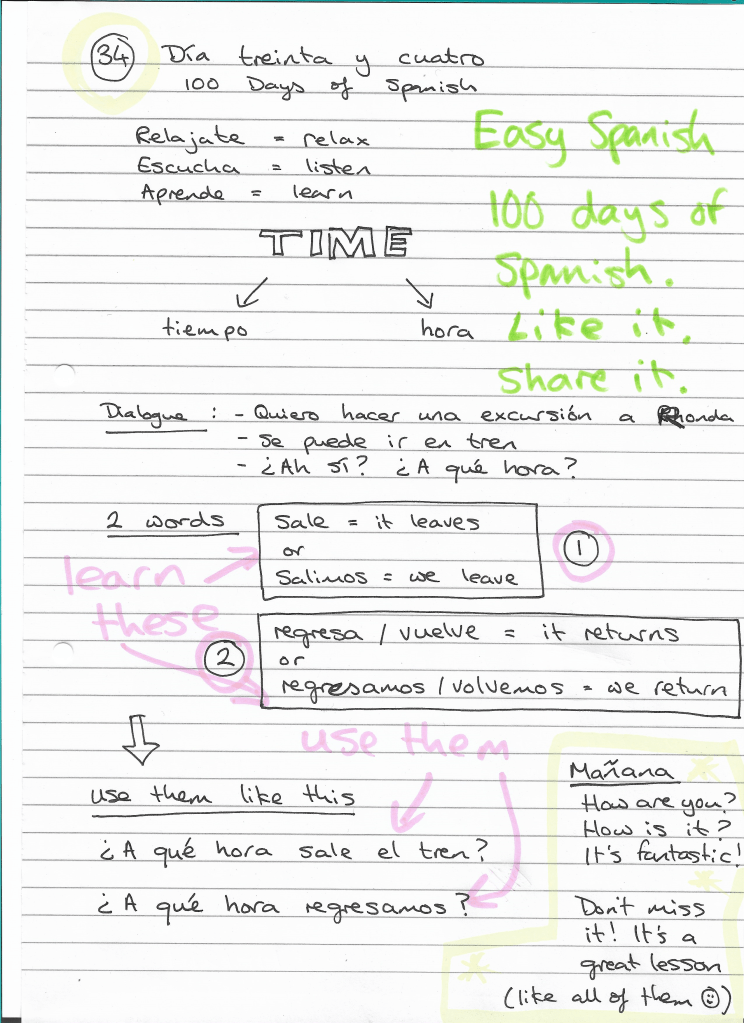 34 Día treinta y cuatro
100 Days of Spanish
Relajate = relax
Escucha = listen
Aprende = learn
Easy Spanish
100 days of
Spanish.
Like it,
share it.
TIME
tiempo hora
Dialogue : - Quiero hacer una excursión a Rhonda
- Se puede ir en tren
- ¿Ah sí? ¿A qué hora?
2 words
Sale = it leaves
or
Salimos = we leave
1
learn
these
2
regresa / vuelve = it returns
or
regresamos / volvemos = we return
use them
use them like this
¿A qué hora sale el tren?
¿A qué hora regresamos?
Mañana
How are you?
How is it?
It's fantastic!
Don't miss
it! It's a
great lesson
(like all of them ☺)